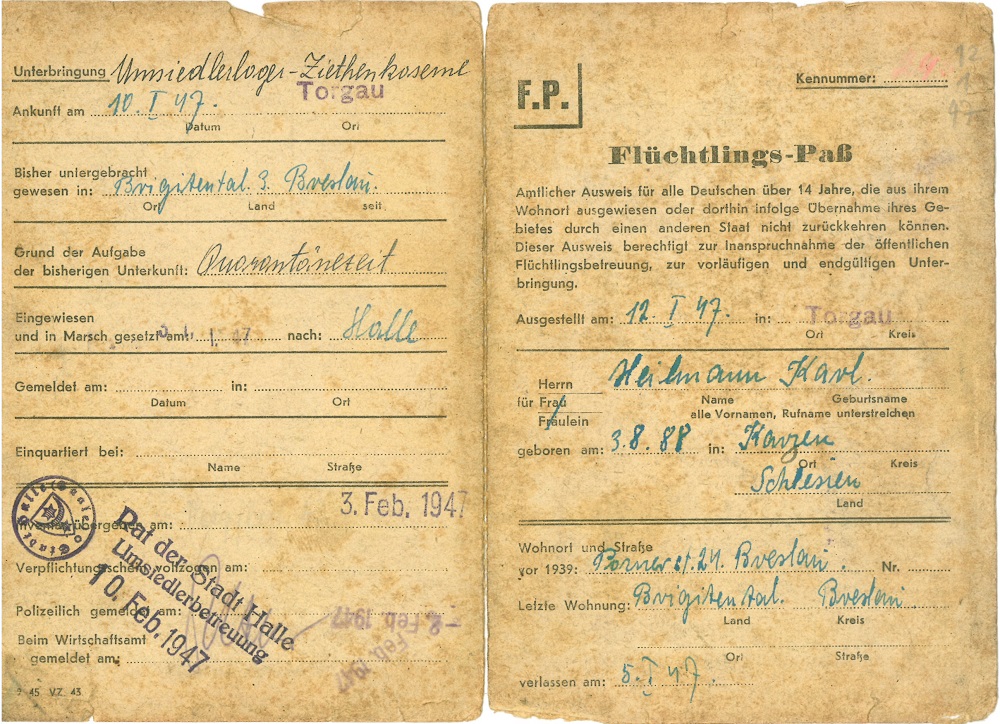 Unterbringung Umsiedlerlager-Ziethenkaserne
Torgau
Ankunft am 10. I 47.
Datum Ort
Bisher untergebracht
gewesen in: Brigitental. 3. Breslau.
Ort Land seit
Grund der Aufgabe
der bisherigen Unterkunft: Quarantänezeit
Eingewiesen
und in Marsch gesetzt am: 1. 47 nach: Halle
Gemeldet am: in:
Datum Ort
Einquartiert bei:
Name Straße
3. Feb. 1947
übergeben am:
Verpflichtungsschein vollzogen am:
Polizeilich gemeldet am:
Beim Wirtschaftsamt
gemeldet am:
Rat der Stadt Halle
Umsiedlerbetreuung
10. Feb. 1947
Feb. 1947
Feb. 1947
45 VZ 43
F.P.
Kennummer:
Flüchtlings-Paß
Amtlicher Ausweis für alle Deutschen über 14 Jahre, die aus ihrem
Wohnort ausgewiesen oder dorthin infolge Übernahme ihres Ge-
bietes durch einen anderen Staat nicht zurückkehren können.
Dieser Ausweis berechtigt zur Inanspruchnahme der öffentlichen
Flüchtlingsbetreuung, zur vorläufigen und endgültigen Unter-
bringung.
Ausgestellt am: 12 I 47. in: Torgau
Ort Kreis
Herrn Heilmann Karl.
für Frau Name Geburtsname
Fräulein alle Vornamen, Rufname unterstreichen
geboren am: 3.8.88 in: Karzen
Ort Kreis
Schlesien
Land
Wohnort und Straße
vor 1939: st. 24. Breslau. Nr.
Letzte Wohnung: Brigitental. Breslau.
Land Kreis
Ort Straße
verlassen am: 5. I 47.